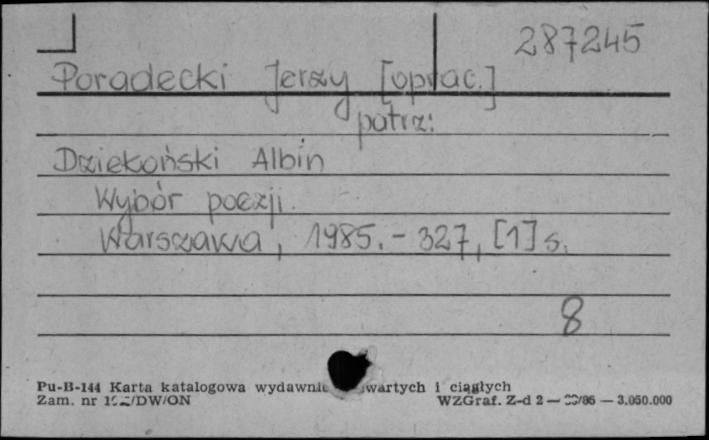 287245
Poradecki Jerzy [oprac.]
patrz:
Dziekoński Albin
Wybór poezji.
Warszawa, 1985. - 327, [1] s.
8
Pu-B-144 Karta katalogowa wydawnic wartych i ciągłych
Zam. nr /DW/ON WZGraf. Z-d 2 — /86 — 3.050.000